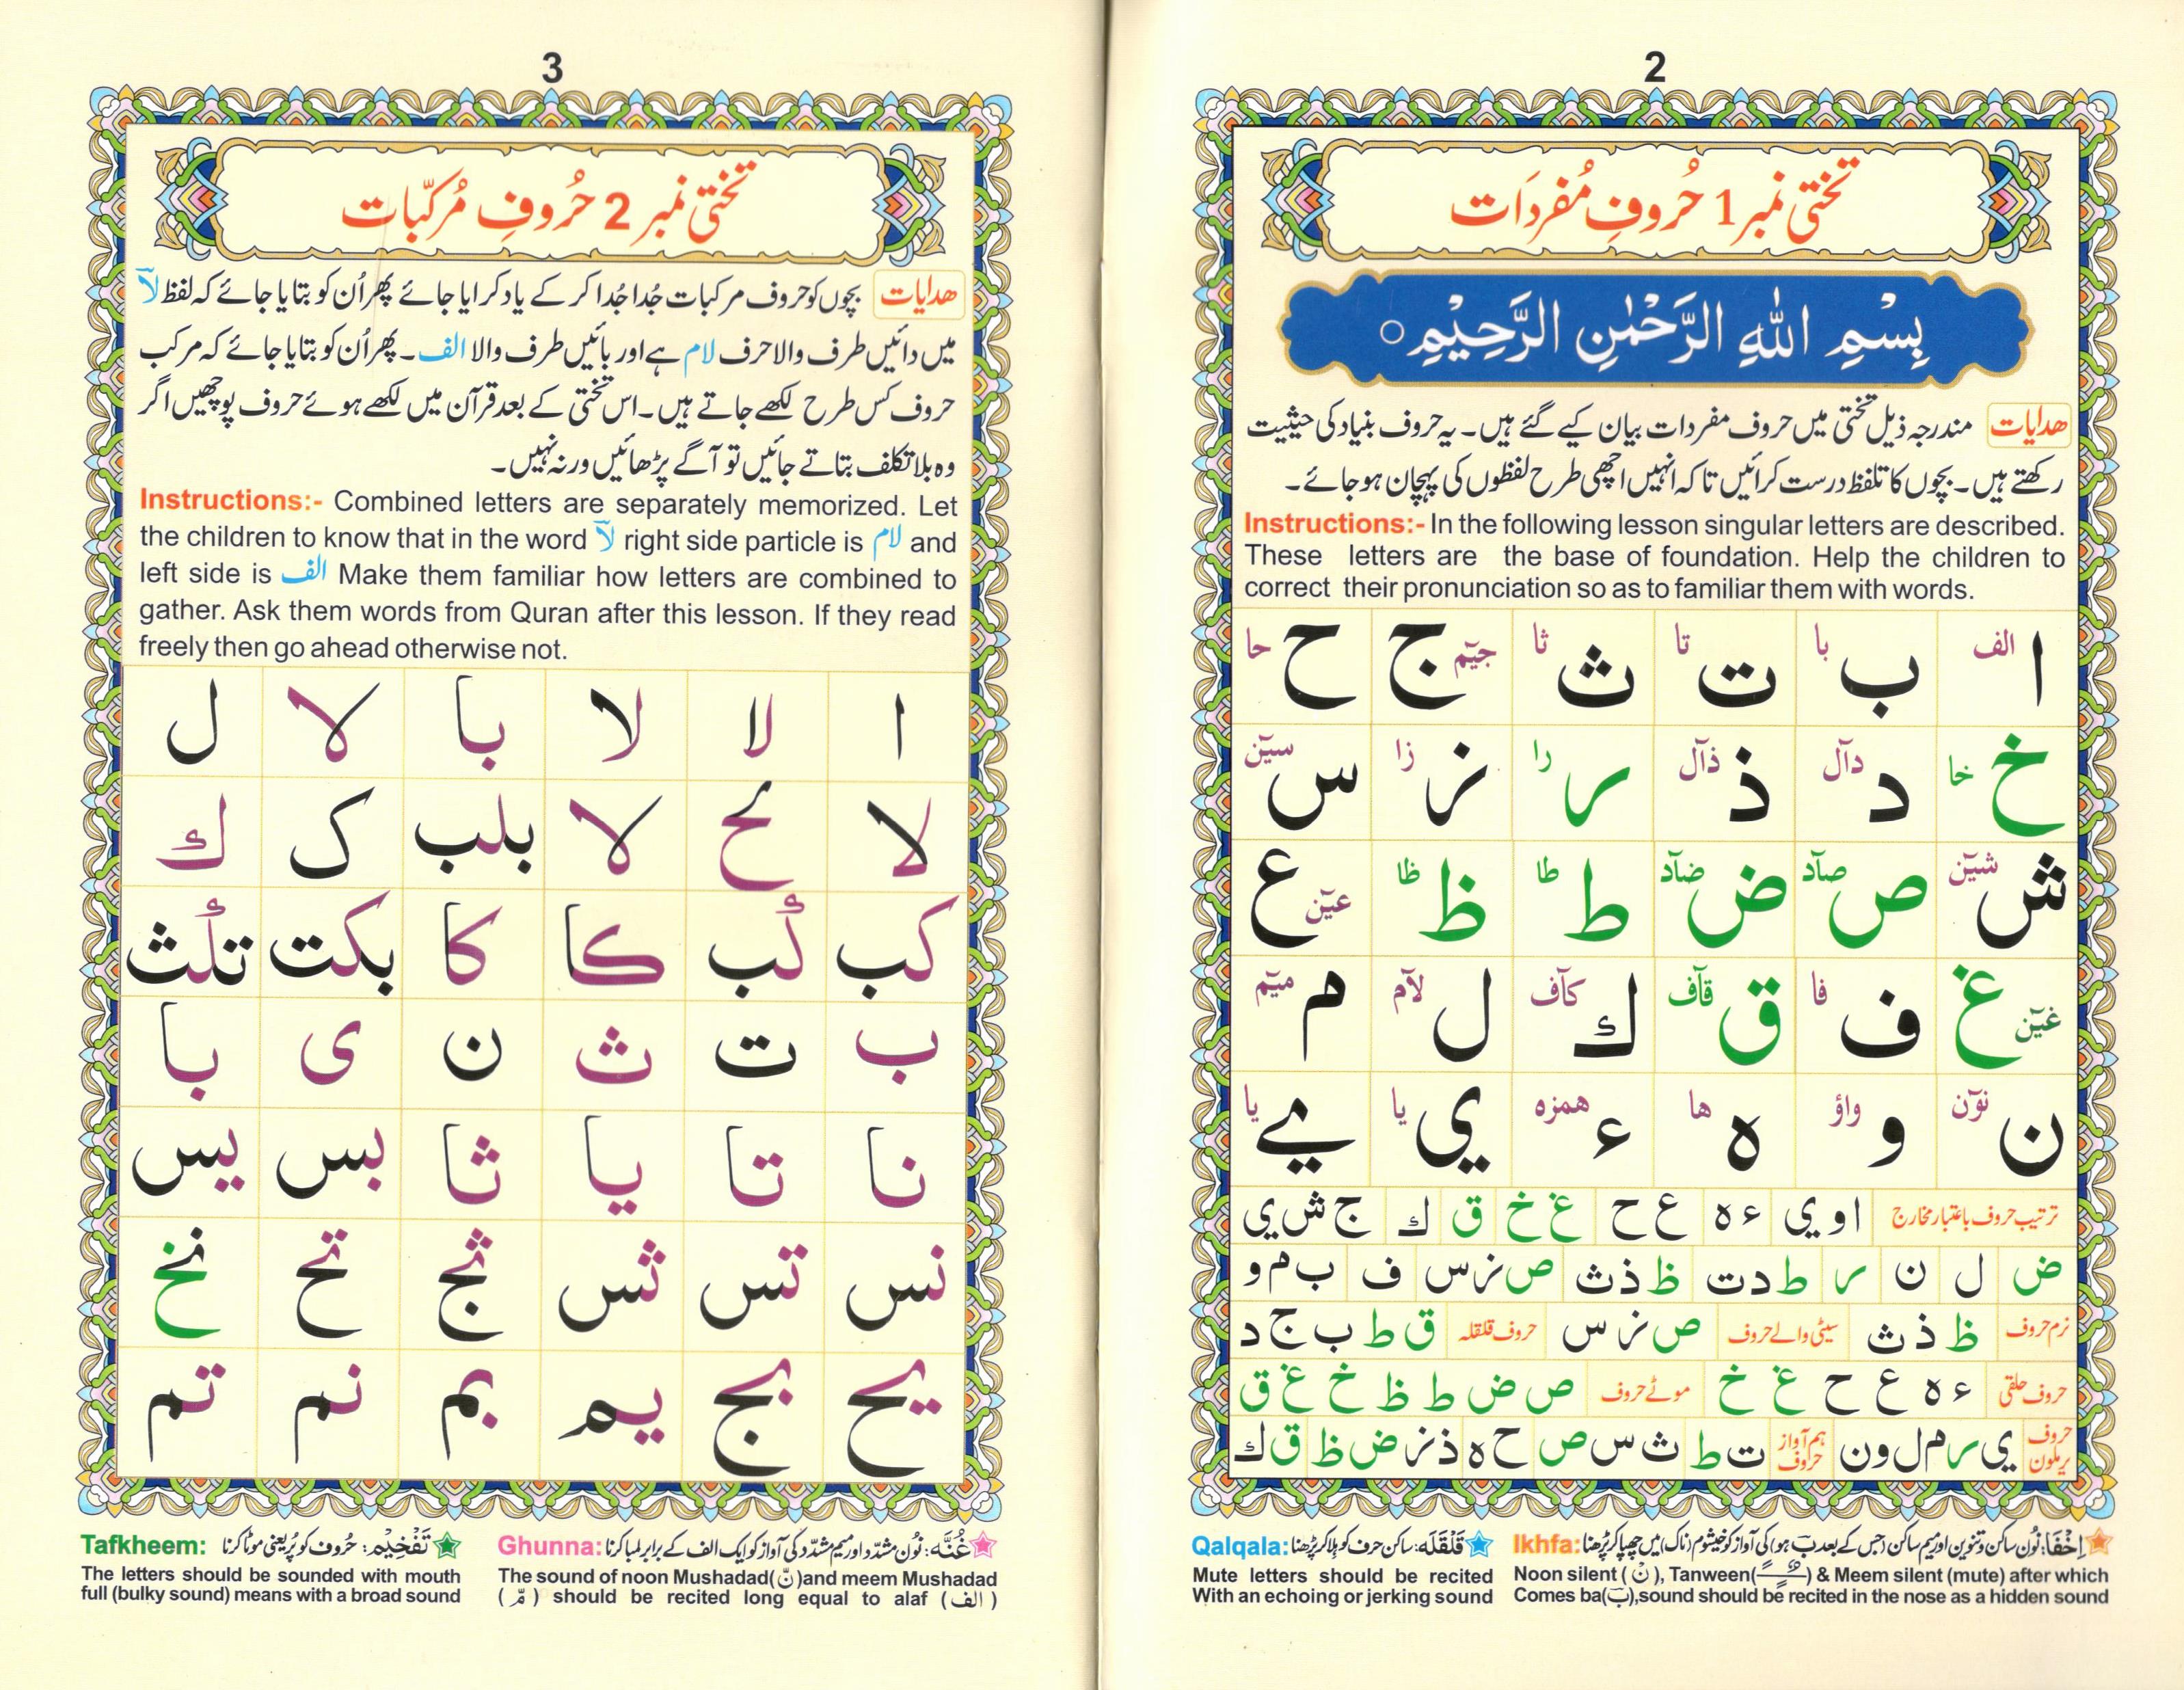 2
تختی نمبر 1 حُروفِ مُفرَدَات
بِسْمِ اللّٰهِ الرَّحْمٰنِ الرَّحِيْمِ ○
هدایات مندرجہ ذیل تختی میں حروف مفردات بیان کیے گئے ہیں۔ یہ حروف بنیاد کی حیثیت
رکھتے ہیں۔ بچوں کا تلفظ درست کرائیں تاکہ انہیں اچھی طرح لفظوں کی پہچان ہو جائے۔
Instructions:- In the following lesson singular letters are described.
These letters are the base of foundation. Help the children to
correct their pronunciation so as to familiar them with words.
ا الف ب با ت تا ث ثا ج جيٓم ح حا
خ خا د دآل ذ ذآل ر را ز زا س سيٓن
ش شيٓن ص صآد ض ضآد ط طا ظ ظا ع عيٓن
غ غيٓن ف فا ق قآف ك كآف ل لآم م ميٓم
ن نوٓن و واؤ ه ها ء همزه ي يا ے يا
ترتیب حروف باعتبار مخارج ا و ي ء ه ع ح غ خ ق ك ج ش ي
ض ل ن ر ط د ت ظ ذ ث ص ز س ف ب م و
نرم حروف ظ ذ ث سیٹی والے حروف ص ز س حروف قلقلہ ق ط ب ج د
حروف حلقی ء ه ع ح غ خ موٹے حروف ص ض ط ظ خ غ ق
حروف یرملون ي ر م ل و ن ہم آواز حروف ت ط ث س ص ح ه ذ ز ض ظ ق ك
اِخْفَا: نُون ساکن و تنوین اور میم ساکن (جس کے بعد ب ہو) کی آواز کو خیشوم (ناک) میں چھپا کر پڑھنا Ikhfa:
Noon silent (نْ), Tanween(ـًـٍـٌ) & Meem silent (mute) after which
Comes ba(ب),sound should be recited in the nose as a hidden sound
قَلْقَلَه: ساکن حرف کو ہلا کر پڑھنا Qalqala:
Mute letters should be recited
With an echoing or jerking sound
3
تختی نمبر 2 حُروفِ مُرکّبات
هدایات بچوں کو حروف مرکبات جُدا جُدا کر کے یاد کرایا جائے پھر اُن کو بتایا جائے کہ لفظ لآ
میں دائیں طرف والا حرف لام ہے اور بائیں طرف والا الف۔ پھر اُن کو بتایا جائے کہ مرکب
حروف کس طرح لکھے جاتے ہیں۔ اس تختی کے بعد قرآن میں لکھے ہوئے حروف پوچھیں اگر
وہ بلا تکلف بتاتے جائیں تو آگے پڑھائیں ورنہ نہیں۔
Instructions:- Combined letters are separately memorized. Let
the children to know that in the word لآ right side particle is لام and
left side is الف Make them familiar how letters are combined to
gather. Ask them words from Quran after this lesson. If they read
freely then go ahead otherwise not.
ا لا لا با لا ل
لا لح لا بلب ک ك
كب كب كا كا بكت تلث
ب ت ث ن ى با
نا تا يا ثا بس يس
نس تس ثس ثج تح نخ
يح بج يم بم نم تم
غُنَّه: نُون مشدّد اور میم مشدّد کی آواز کو ایک الف کے برابر لمبا کرنا Ghunna:
The sound of noon Mushadad(نّ)and meem Mushadad
(مّ) should be recited long equal to alaf (الف)
تَفْخِيْم: حُروف کو پُر یعنی موٹا کرنا Tafkheem:
The letters should be sounded with mouth
full (bulky sound) means with a broad sound